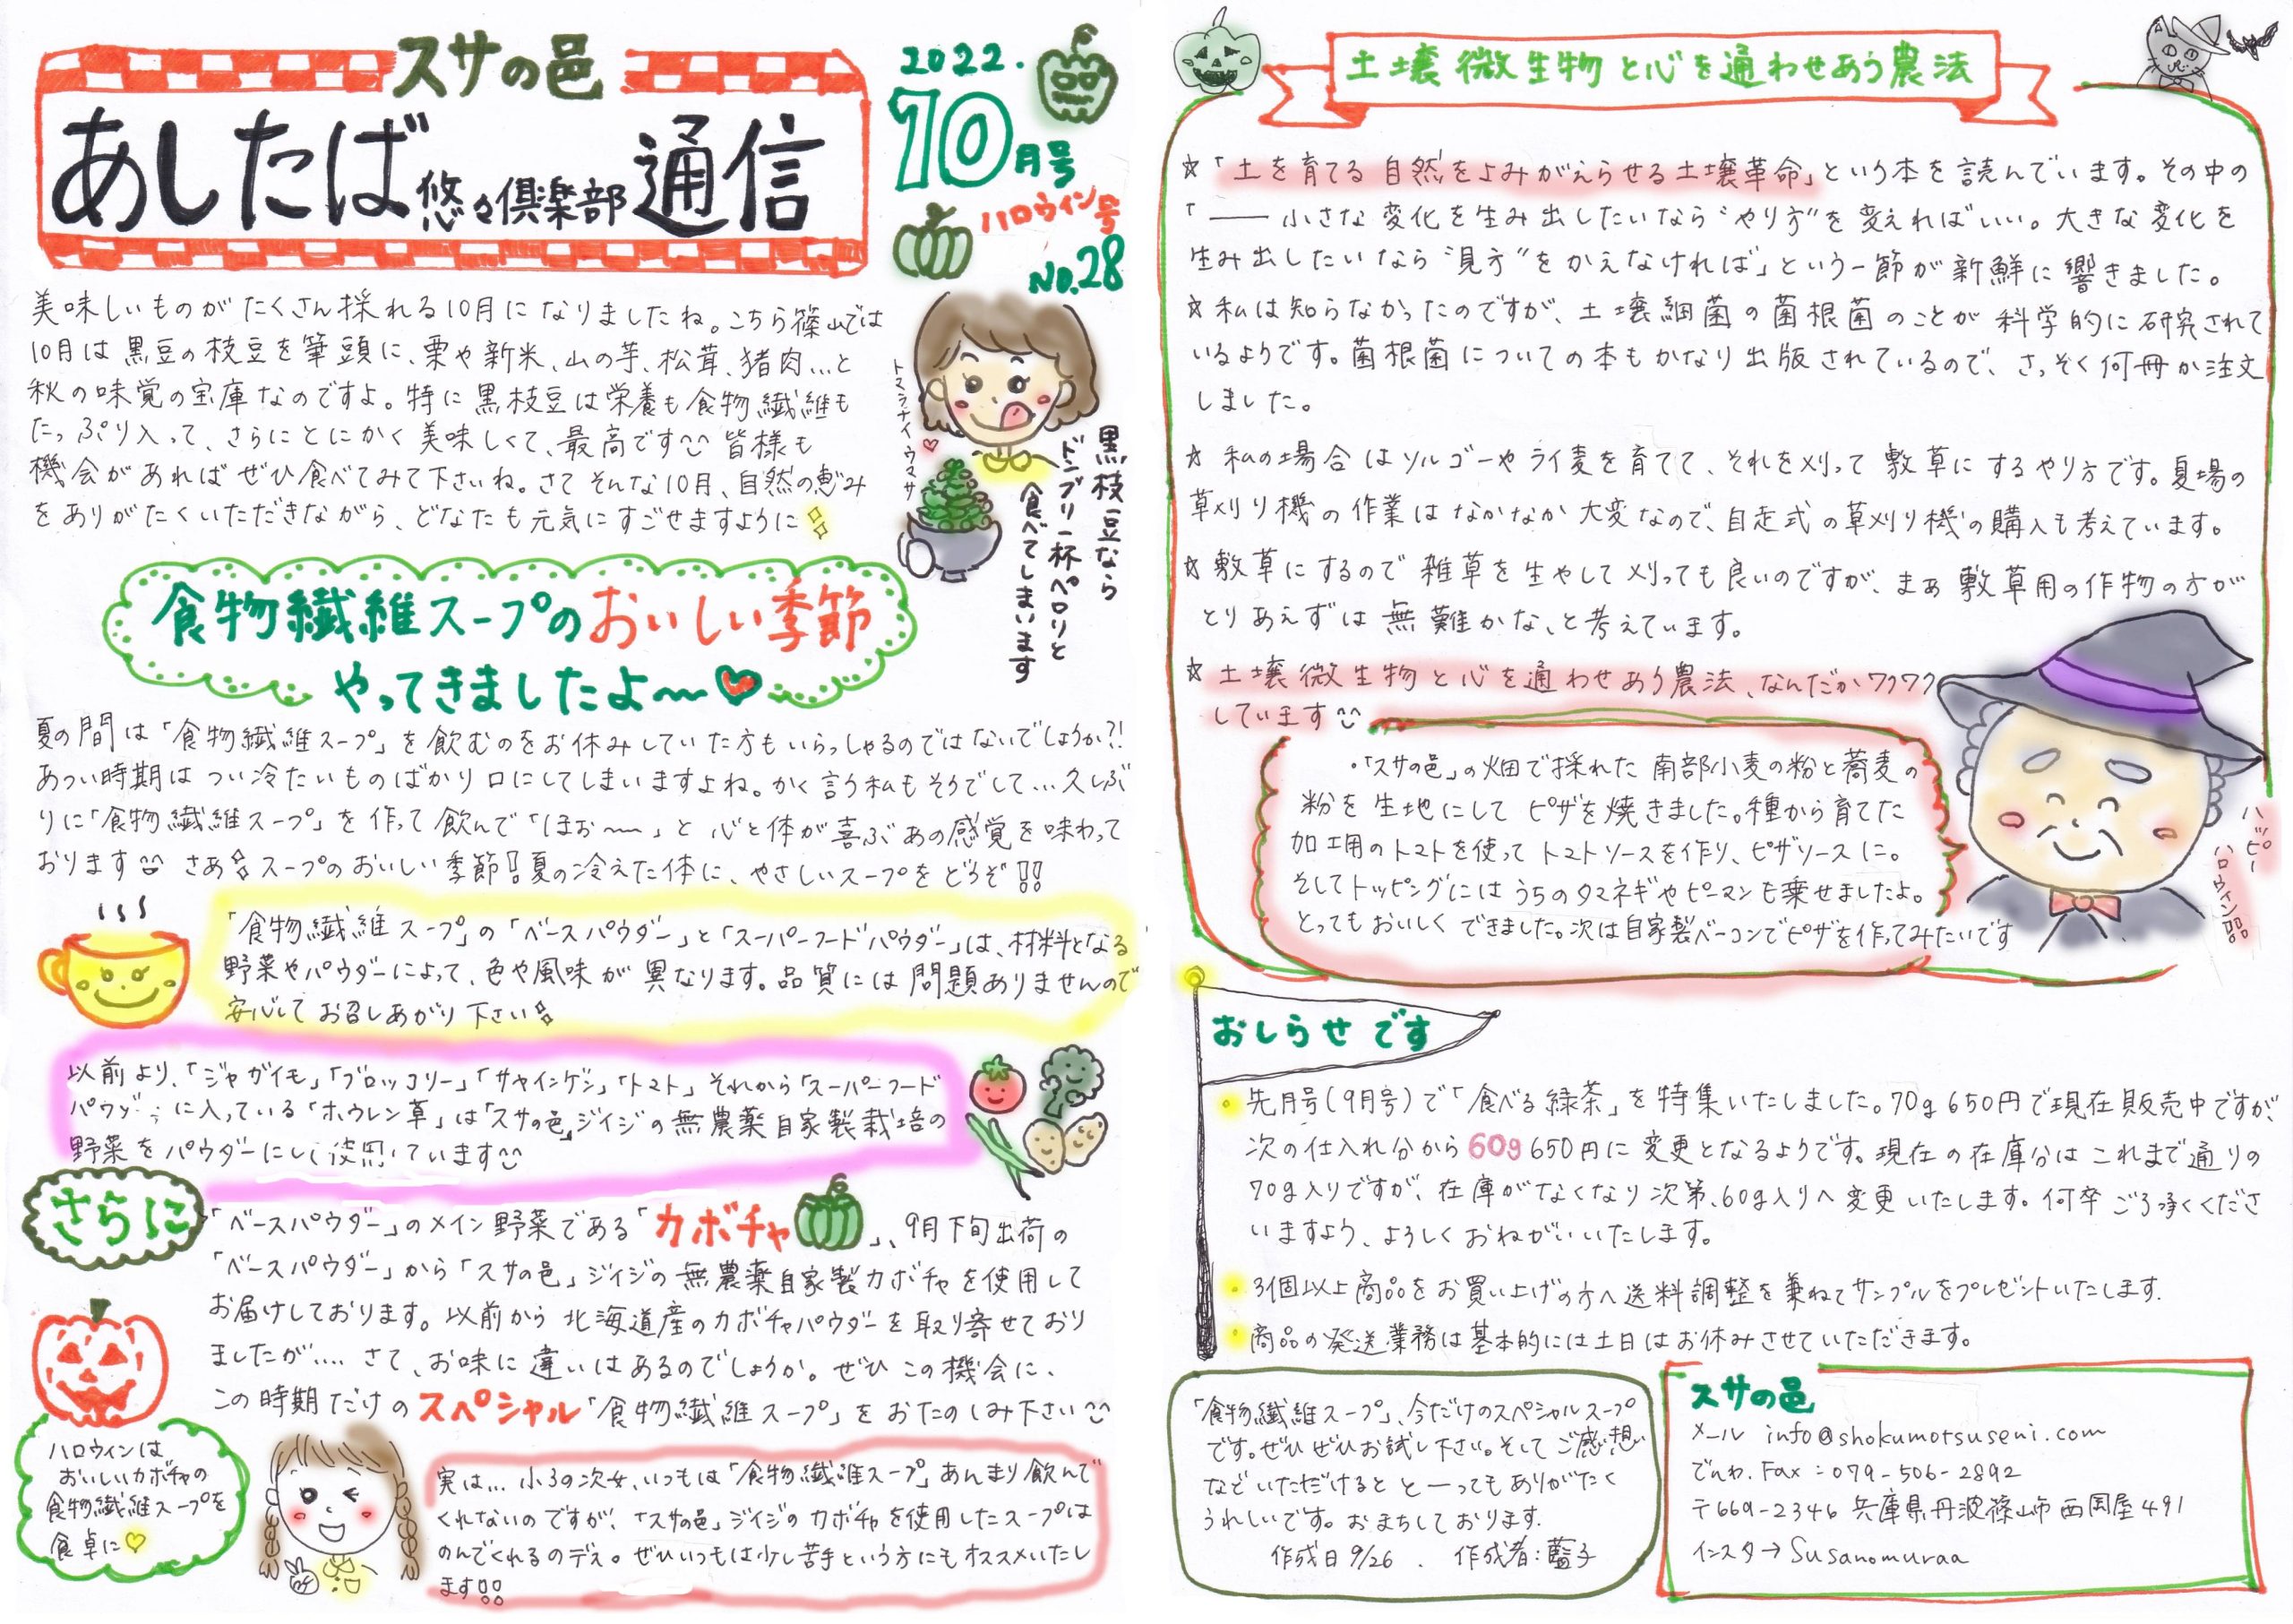 スサの邑
あしたば悠々倶楽部通信
2022.
10月号
ハロウィン号
No.28
美味しいものがたくさん採れる10月になりましたね。こちら篠山では
10月は黒豆の枝豆を筆頭に、栗や新米、山の芋、松茸、猪肉…と
秋の味覚の宝庫なのですよ。特に黒枝豆は栄養も食物繊維も
たっぷり入って、さらにとにかく美味しくて、最高です 皆様も
機会があればぜひ食べてみて下さいね。さてそんな10月、自然の恵み
をありがたくいただきながら、どなたも元気にすごせますように
トマラナイウマサ
黒枝豆なら
ドンブリ一杯ペロリと
食べてしまいます
食物繊維スープのおいしい季節
やってきましたよ〜♥
夏の間は「食物繊維スープ」を飲むのをお休みしていた方もいらっしゃるのではないでしょうか?!
あつい時期はつい冷たいものばかり口にしてしまいますよね。かく言う私もそうでして…久しぶ
りに「食物繊維スープ」を作って飲んで「ほぉ〜〜」と心と体が喜ぶあの感覚を味わって
おります さあ スープのおいしい季節!夏の冷えた体に、やさしいスープをどうぞ!!
「食物繊維スープ」の「ベースパウダー」と「スーパーフードパウダー」は、材料となる
野菜やパウダーによって、色や風味が異なります。品質には問題ありませんので
安心してお召しあがり下さい
以前より、「ジャガイモ」「ブロッコリー」「サヤインゲン」「トマト」それから「スーパーフード
パウダーに入っている「ホウレン草」は「スサの邑」ジイジの無農薬自家製栽培の
野菜をパウダーにして使用しています
さらに
「ベースパウダー」のメイン野菜である「カボチャ」、9月下旬出荷の
「ベースパウダー」から「スサの邑」ジイジの無農薬自家製カボチャを使用して
お届けしております。以前から北海道産のカボチャパウダーを取り寄せており
ましたが…. さて、お味に違いはあるのでしょうか。ぜひこの機会に、
この時期だけのスペシャル「食物繊維スープ」をおたのしみ下さい
ハロウィンは
おいしいカボチャの
食物繊維スープを
食卓に♡
実は… 小3の次女、いつもは「食物繊維スープ」あんまり飲んで
くれないのですが、「スサの邑」ジイジのカボチャを使用したスープは
のんでくれるのデス。ぜひいつもは少し苦手という方にもオススメいたし
ます!!
土壌微生物と心を通わせあう農法
☆「土を育てる 自然をよみがえらせる土壌革命」という本を読んでいます。その中の
「――小さな変化を生み出したいなら“やり方”を変えればいい。大きな変化を
生み出したいなら“見方”をかえなければ」という一節が新鮮に響きました。
☆私は知らなかったのですが、土壌細菌の菌根菌のことが科学的に研究されて
いるようです。菌根菌についての本もかなり出版されているので、さっそく何冊か注文
しました。
☆ 私の場合はソルゴーやライ麦を育てて、それを刈って敷草にするやり方です。夏場の
草刈り機の作業はなかなか大変なので、自走式の草刈り機の購入も考えています。
☆敷草にするので雑草を生やして刈っても良いのですが、まあ敷草用の作物の方が
とりあえずは無難かな、と考えています。
☆土壌微生物と心を通わせあう農法、なんだかワクワク
しています
・「スサの邑」の畑で採れた南部小麦の粉と蕎麦の
粉を生地にしてピザを焼きました。種から育てた
加工用のトマトを使ってトマトソースを作り、ピザソースに。
そしてトッピングにはうちのタマネギやピーマンも乗せましたよ。
とってもおいしくできました。次は自家製ベーコンでピザを作ってみたいです
ハッピー
ハロウィン!!
おしらせです
・先月号(9月号)で「食べる緑茶」を特集いたしました。70g650円で現在販売中ですが、
次の仕入れ分から60g650円に変更となるようです。現在の在庫分はこれまで通りの
70g入りですが、在庫がなくなり次第、60g入りへ変更いたします。何卒ご了承くださ
いますよう、よろしくおねがいいたします。
・3個以上商品をお買い上げの方へ送料調整を兼ねてサンプルをプレゼントいたします.
・商品の発送業務は基本的には土日はお休みさせていただきます。
「食物繊維スープ」、今だけのスペシャルスープ
です。ぜひぜひお試し下さい。そしてご感想
などいただけるとと―ってもありがたく
うれしいです。おまちしております.
作成日9/26. 作成者:藍子
スサの邑
メール info@shokumotsuseni.com
でんわ.Fax:079-506-2892
〒669-2346 兵庫県丹波篠山市西岡屋491
インスタ→Susanomuraa